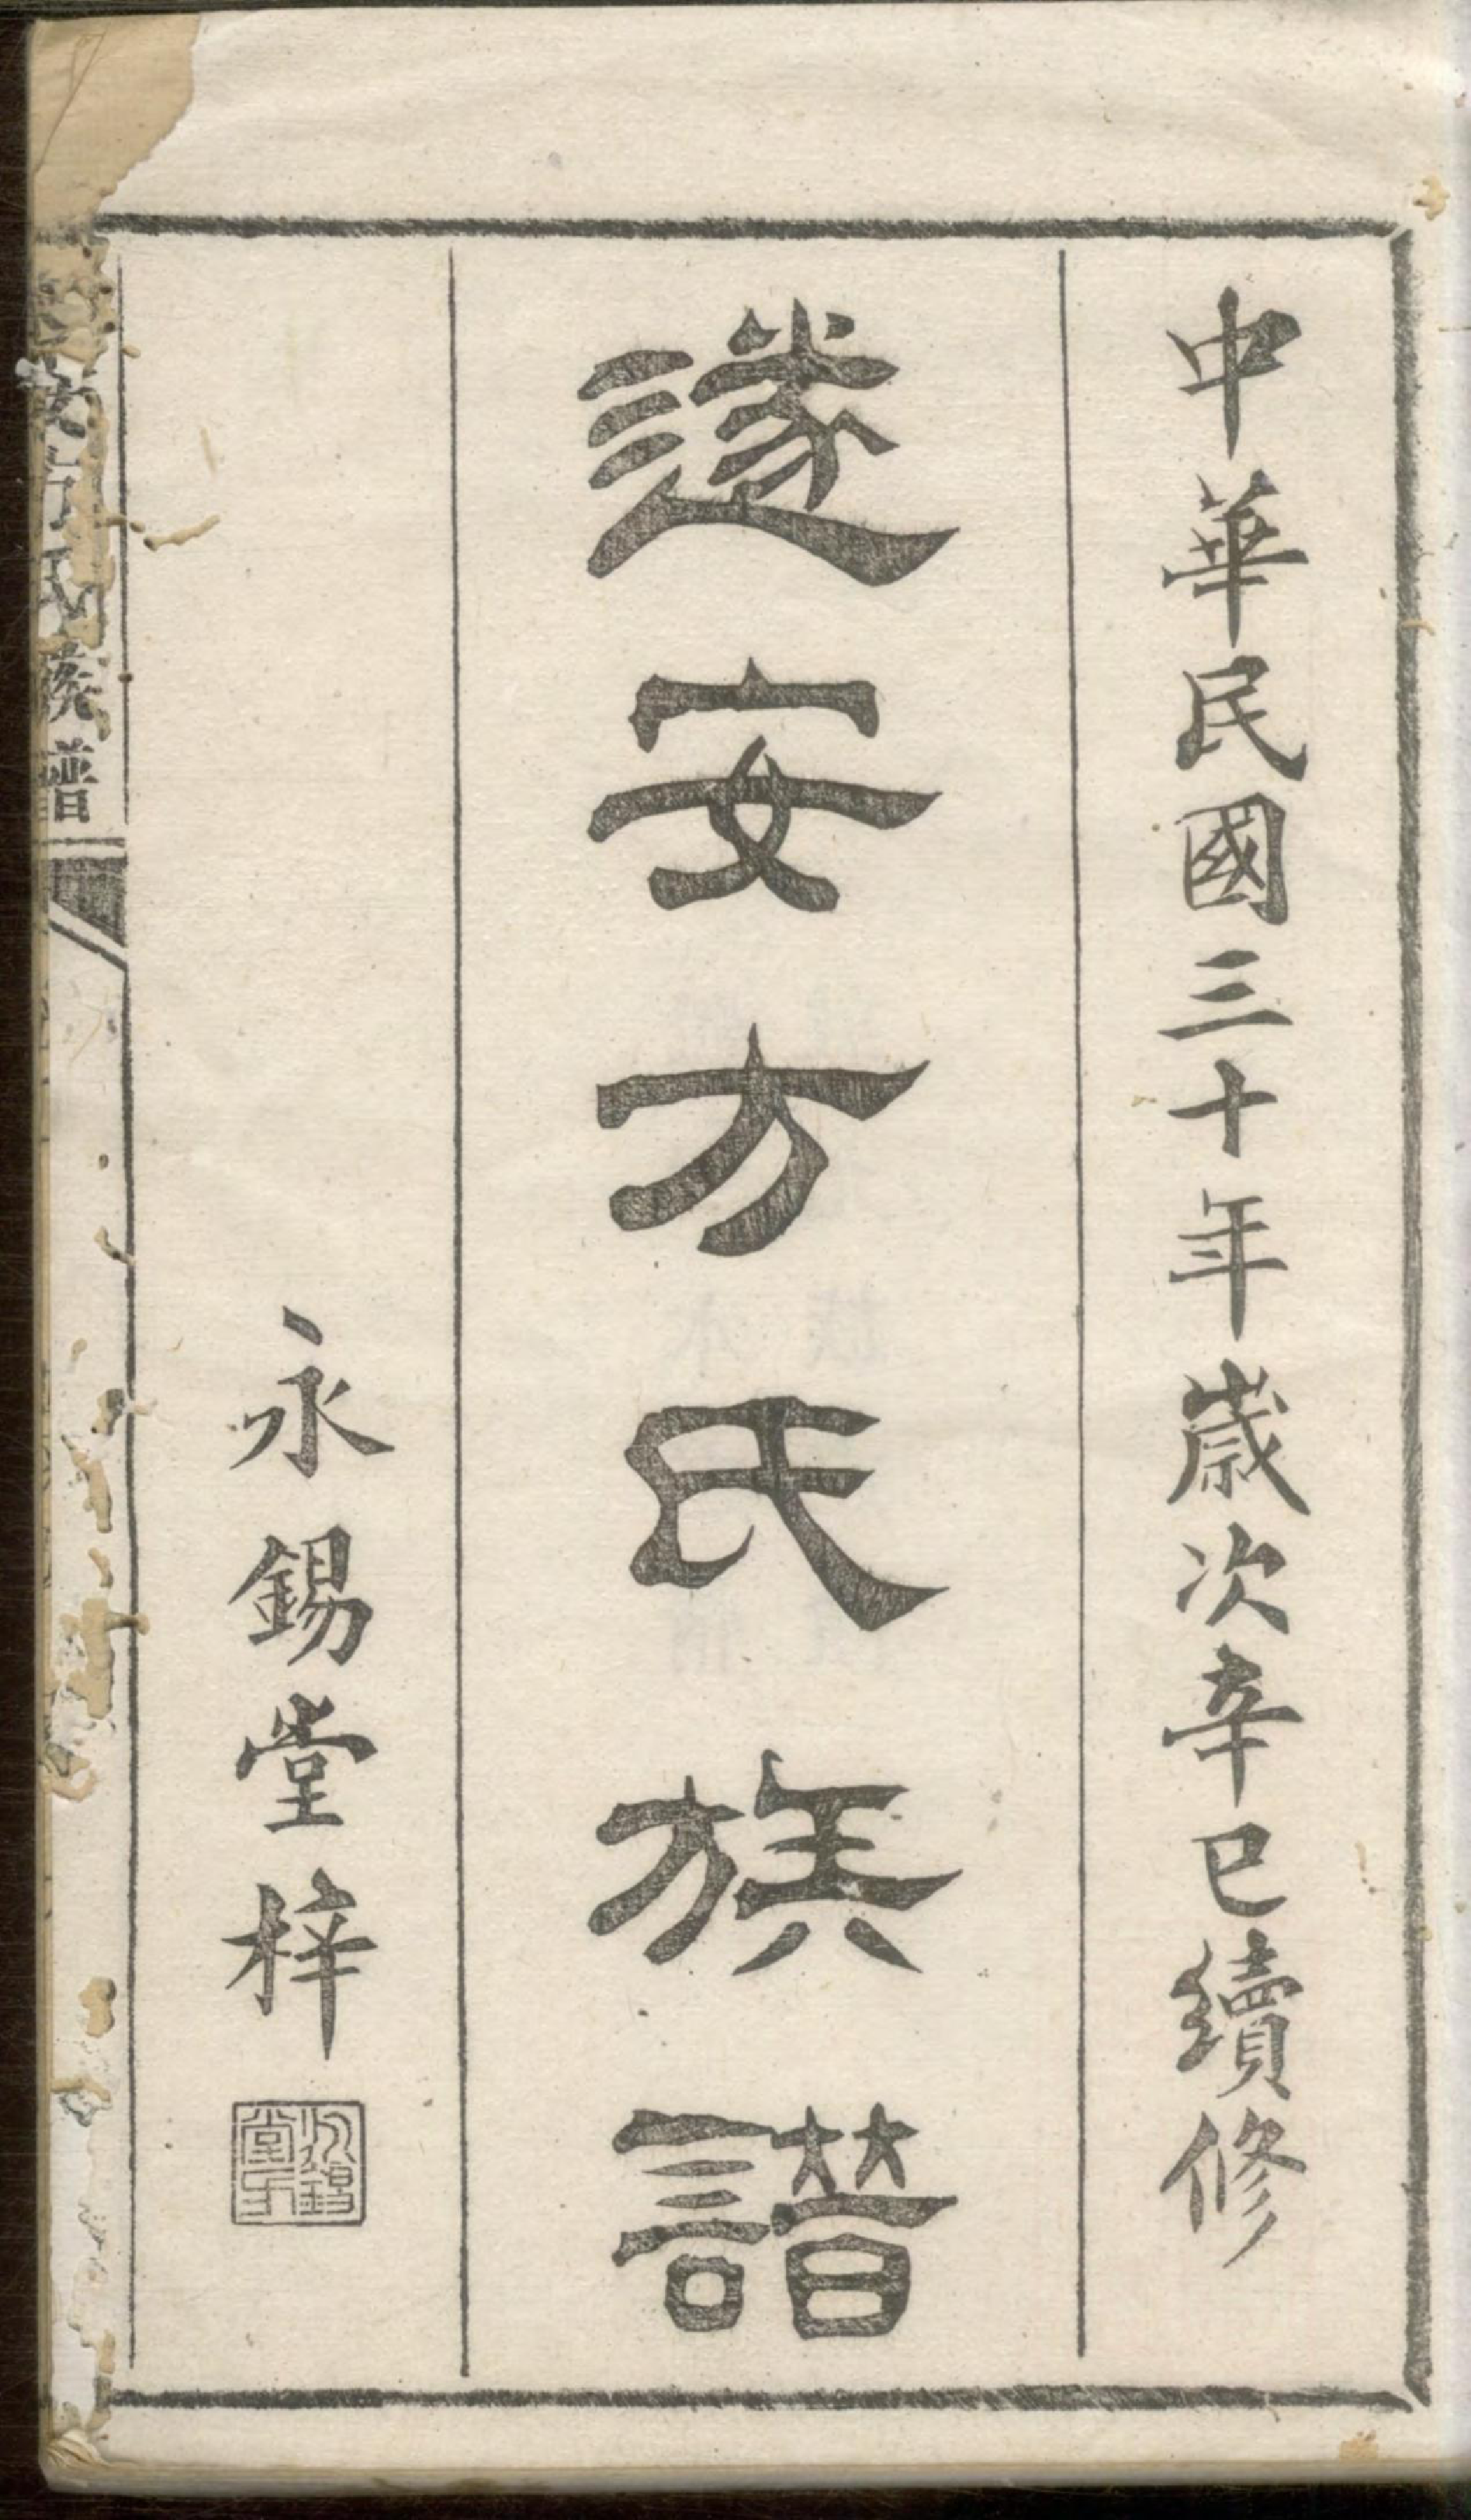 中華民國三十年歲次辛巳續修
遂安方氏族譜
永錫堂梓
安方氏族譜